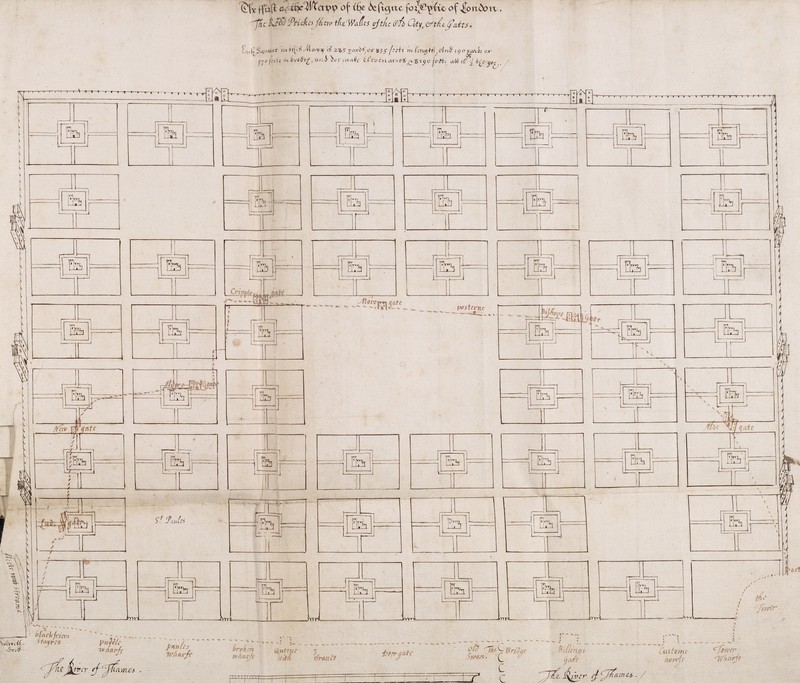 The ffirst of the Mapp of the designe for Cyttie of London.
The Redd Prickes shew the Walles of the old City, & the Gatts.
Each Square in this Mapp is 285 yards, or 855 feete in length, And 190 yards or
570 feete in bredth, and doe make
Cripple gate
More gate
posterne
Bishops gate
Alders gate
New gate
Alde gate
Lud gate
St Paules
the Tower
blackfriers stayres
puddle wharfe
paules wharfe
broken wharfe
Queene hith
3 Cranes
Dowgate
old Swan
The Bridge
Billings gate
Custome howse
Tower Wharfe
The River of Thames.
The River of Thames.